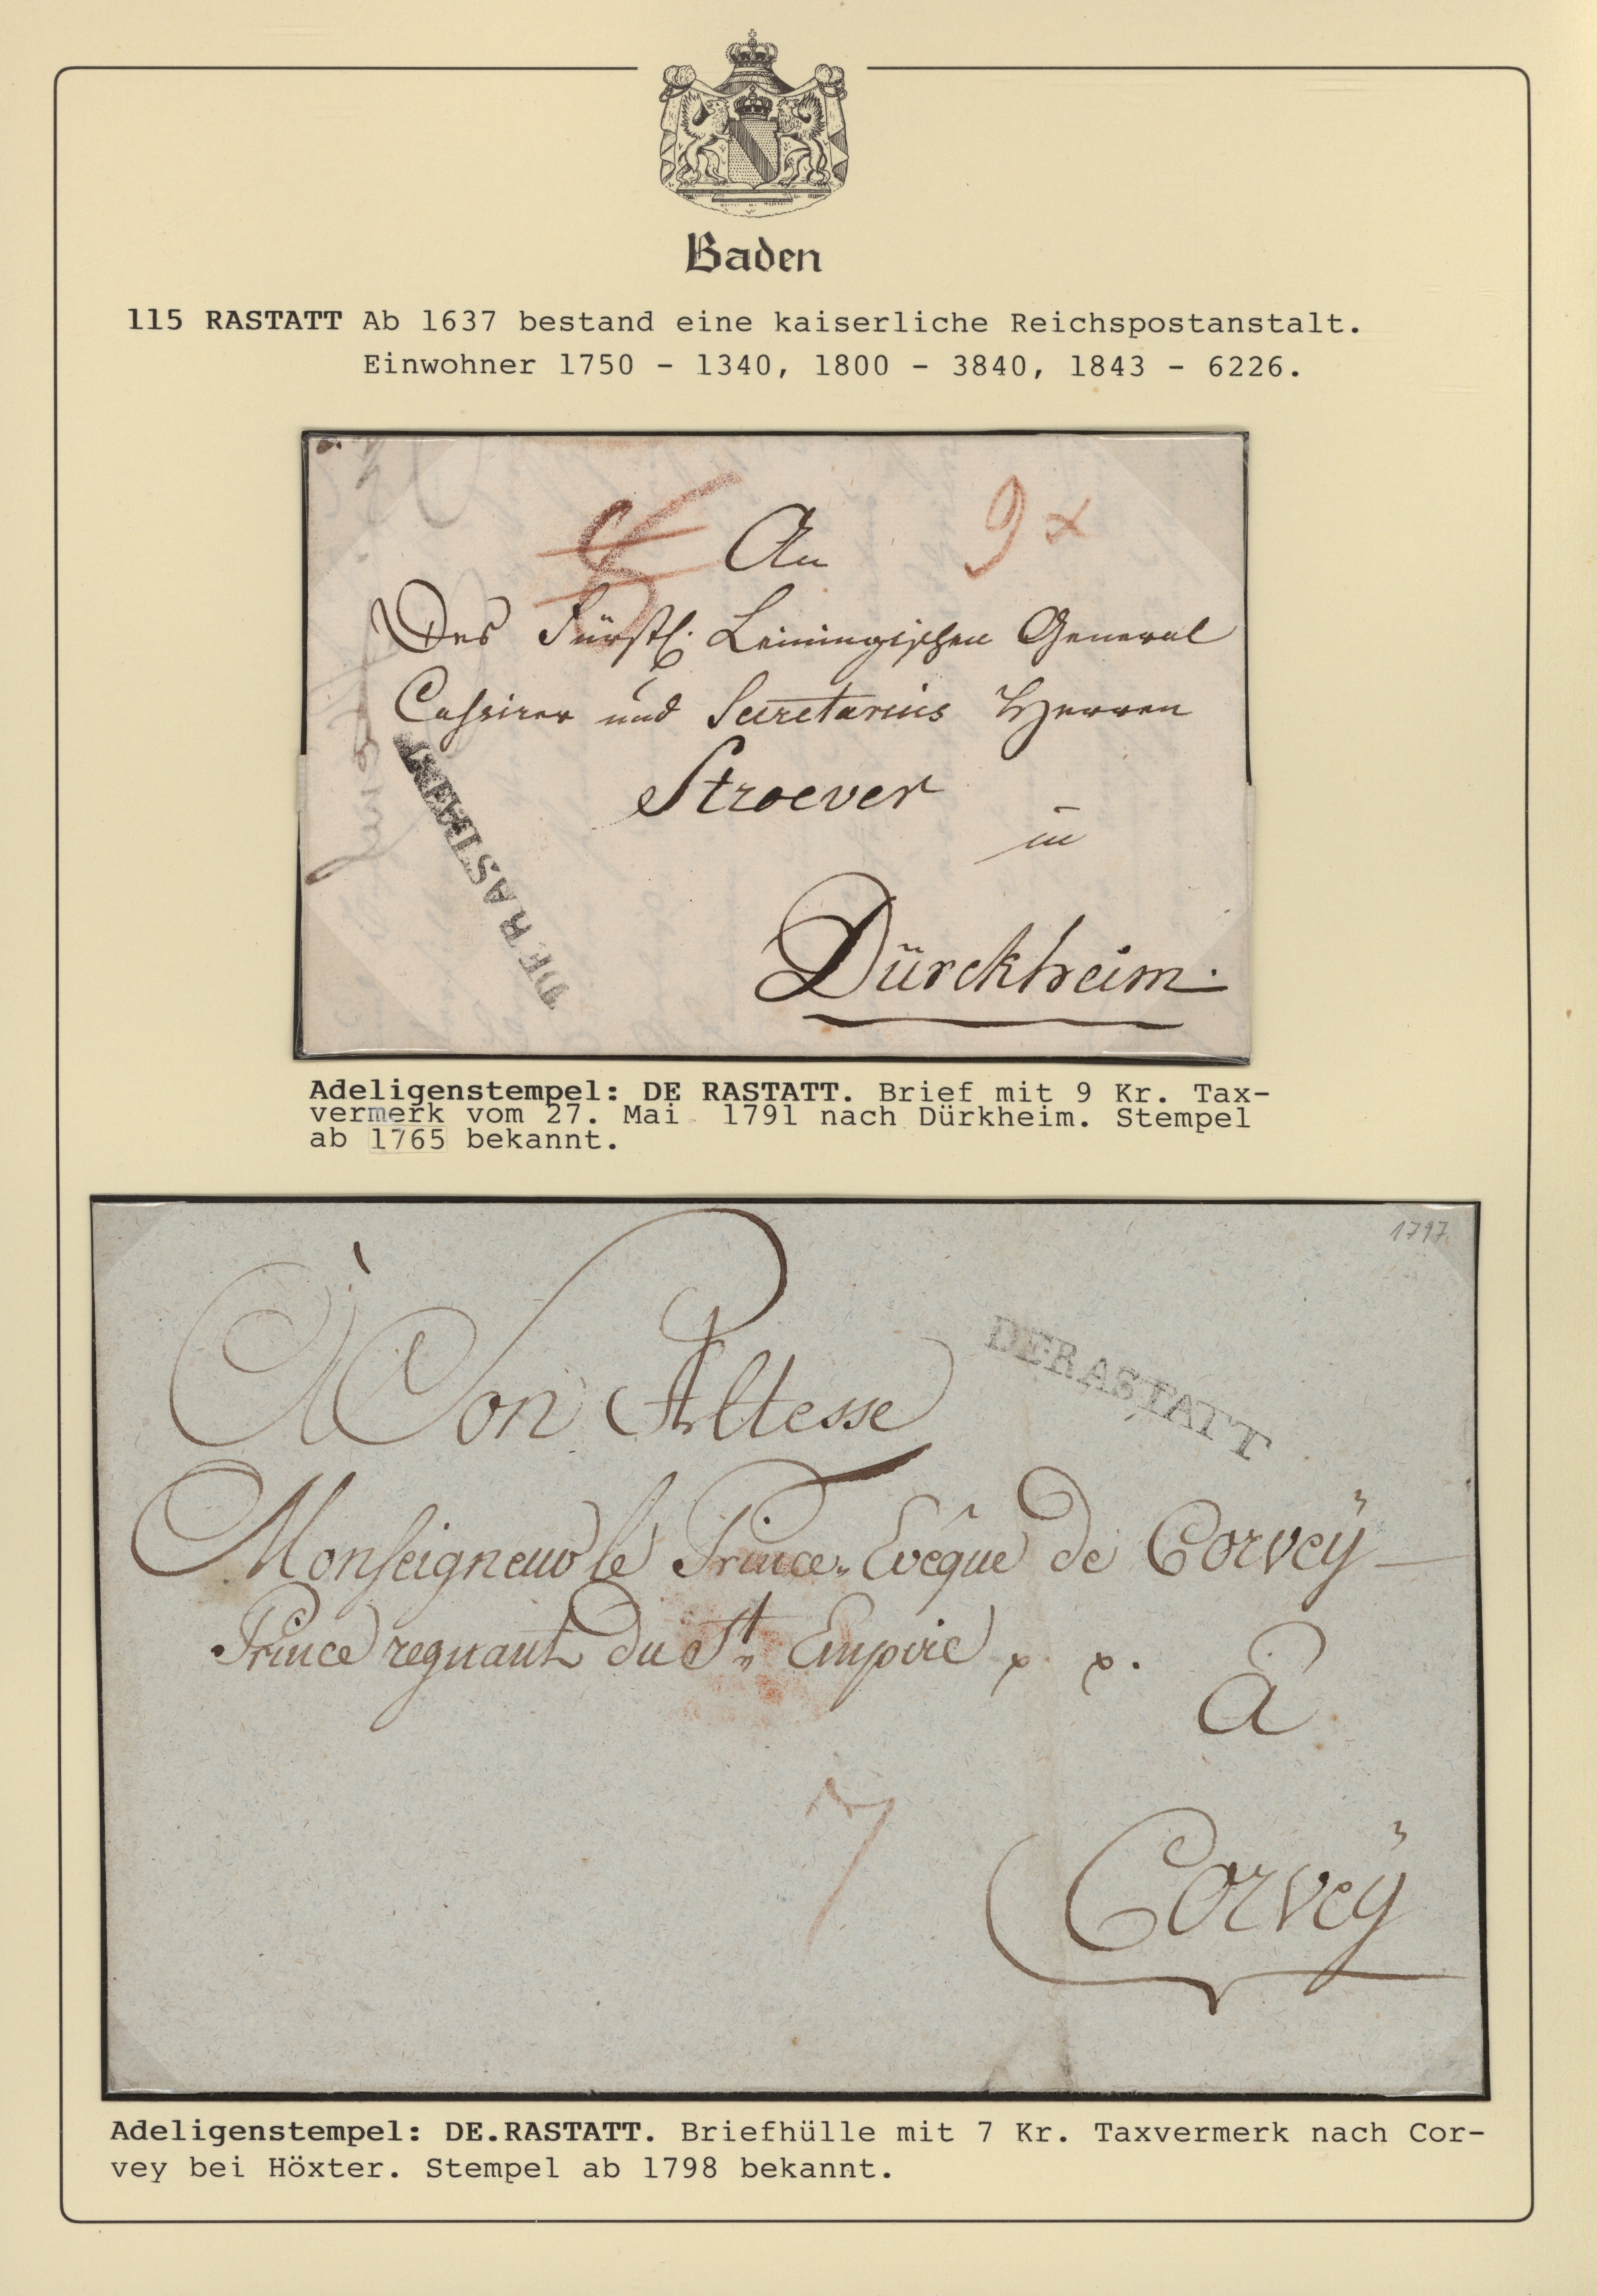 Baden
115 RASTATT Ab 1637 bestand eine kaiserliche Reichspostanstalt.
Einwohner 1750 - 1340, 1800 - 3840, 1843 - 6226.
9 x
An
Des Fürstl. Leiningischen General
Cassirer und Secretarius Herren
Stroever
in
Dürckheim.
DE RASTATT
Adeligenstempel: DE RASTATT. Brief mit 9 Kr. Tax-
vermerk vom 27. Mai 1791 nach Dürkheim. Stempel
ab 1765 bekannt.
1797
DE RASTATT
À Son Altesse
Monseigneur le Prince Evêque de Corvey
Prince regnant du St. Empire
à
7
Corvey
Adeligenstempel: DE.RASTATT. Briefhülle mit 7 Kr. Taxvermerk nach Cor-
vey bei Höxter. Stempel ab 1798 bekannt.